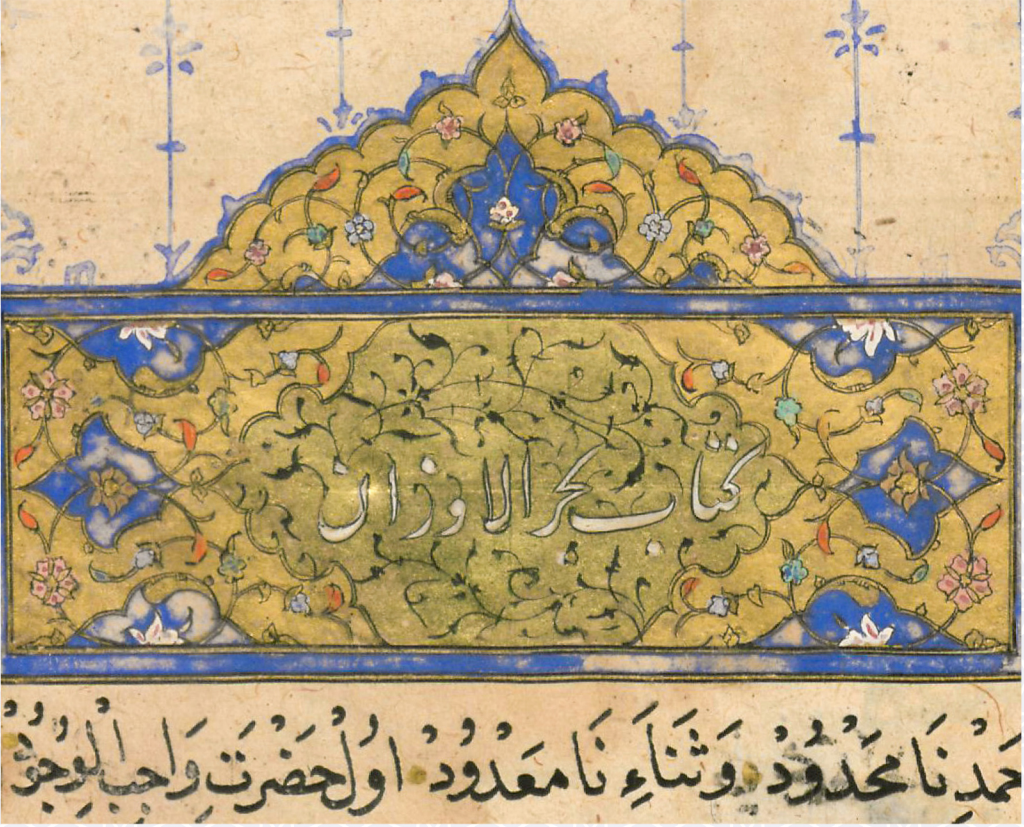 كتاب بحر الاوزان
حمد نَا مَحْدُوُدْ وَثَنَاَءِ نَا مَعْدُوُدْ اوُلْ حَضْرَتِ وَاجِبُ الْوُجُوُدْ